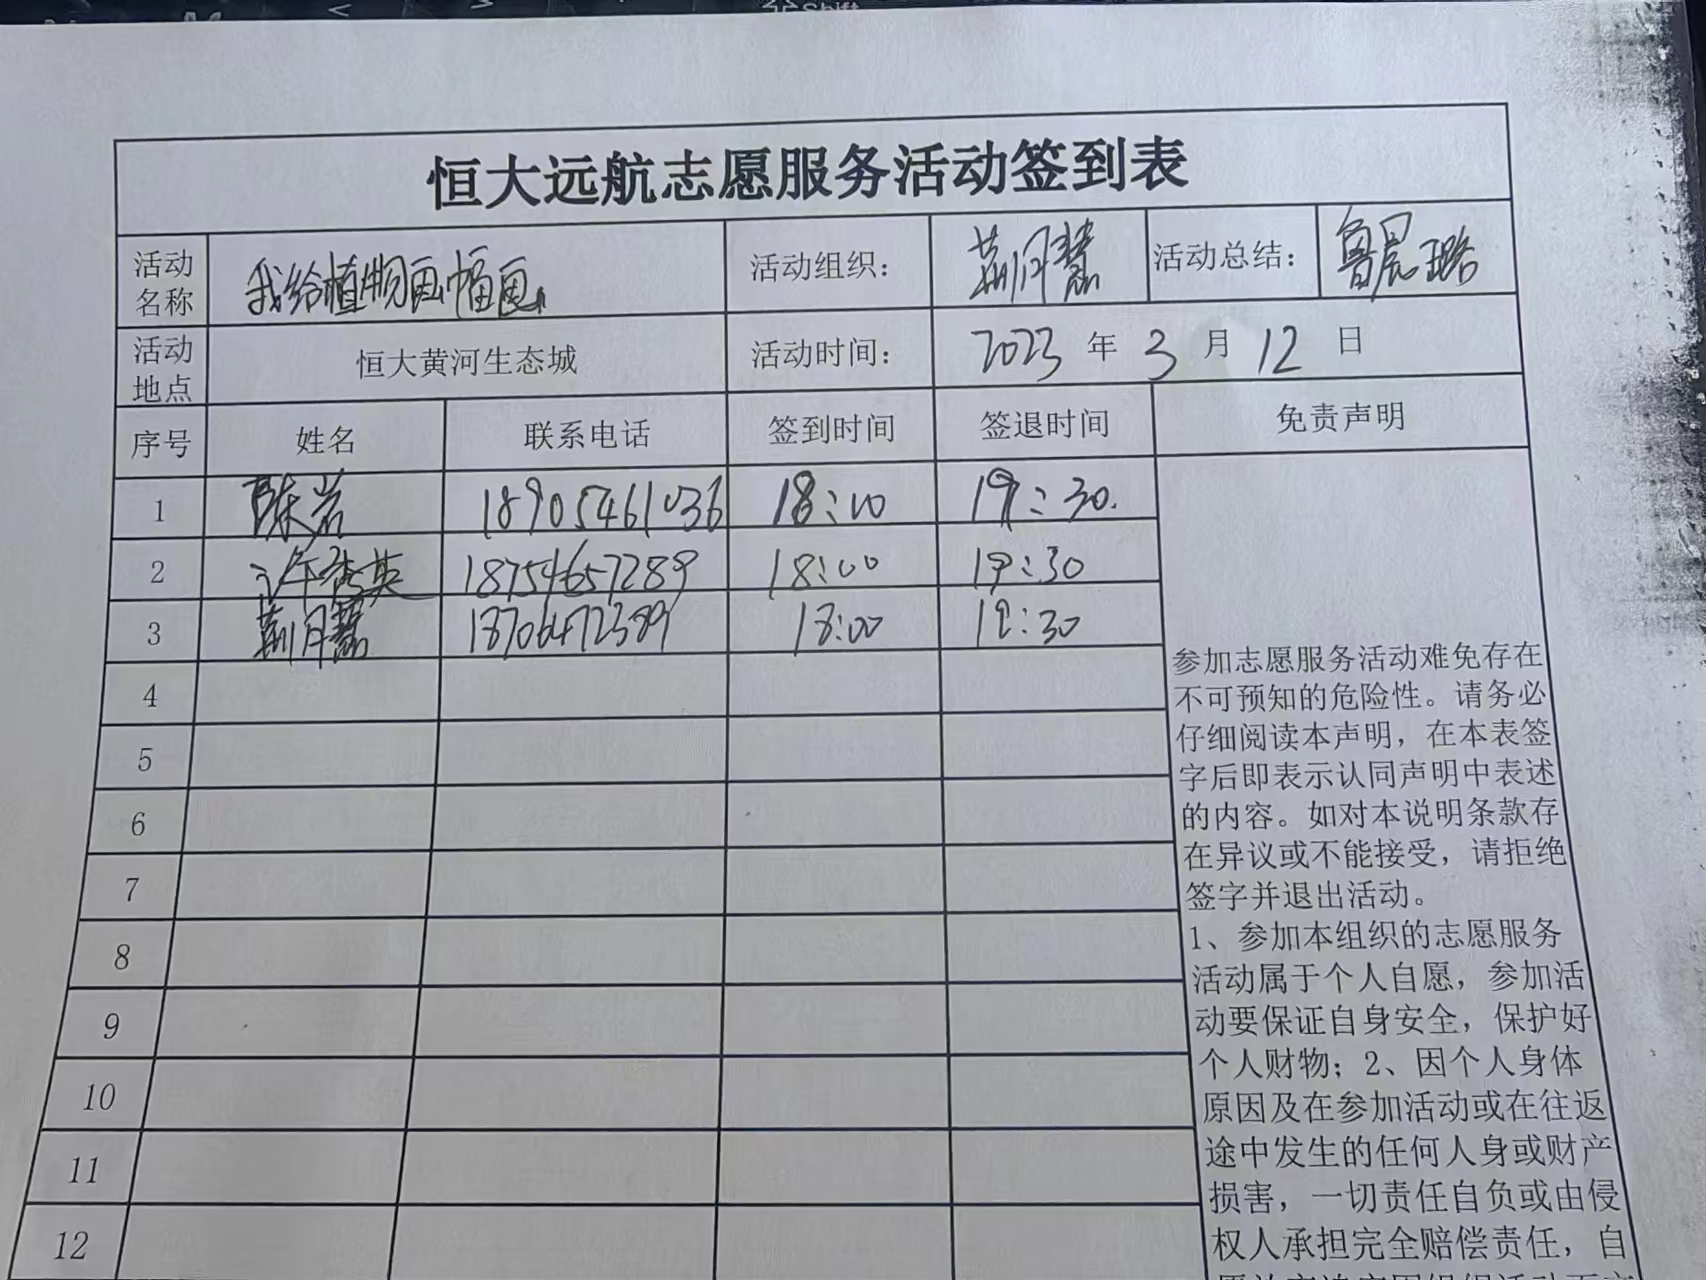 Shift
恒大远航志愿服务活动签到表
活动名称 我给植物画幅画 活动组织： 荆月慧 活动总结： 鲁晨璐
活动地点 恒大黄河生态城 活动时间： 2023 年 3 月 12 日
序号 姓名 联系电话 签到时间 签退时间 免责声明
1 陈岩 18905461036 18:00 19:30.
2 许秀英 18754657289 18:00 19:30
3 荆月慧 18706472389 18:00 19:30
4
5
6
7
8
9
10
11
12
参加志愿服务活动难免存在
不可预知的危险性。请务必
仔细阅读本声明，在本表签
字后即表示认同声明中表述
的内容。如对本说明条款存
在异议或不能接受，请拒绝
签字并退出活动。
1、参加本组织的志愿服务
活动属于个人自愿，参加活
动要保证自身安全，保护好
个人财物；2、因个人身体
原因及在参加活动或在往返
途中发生的任何人身或财产
损害，一切责任自负或由侵
权人承担完全赔偿责任，自